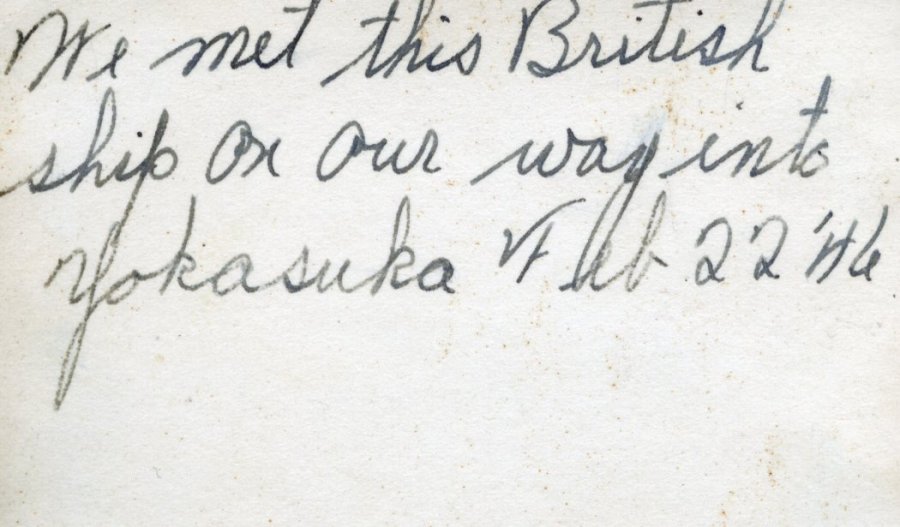 We met this British
ship on our way into
Yokasuka Feb 22 '46